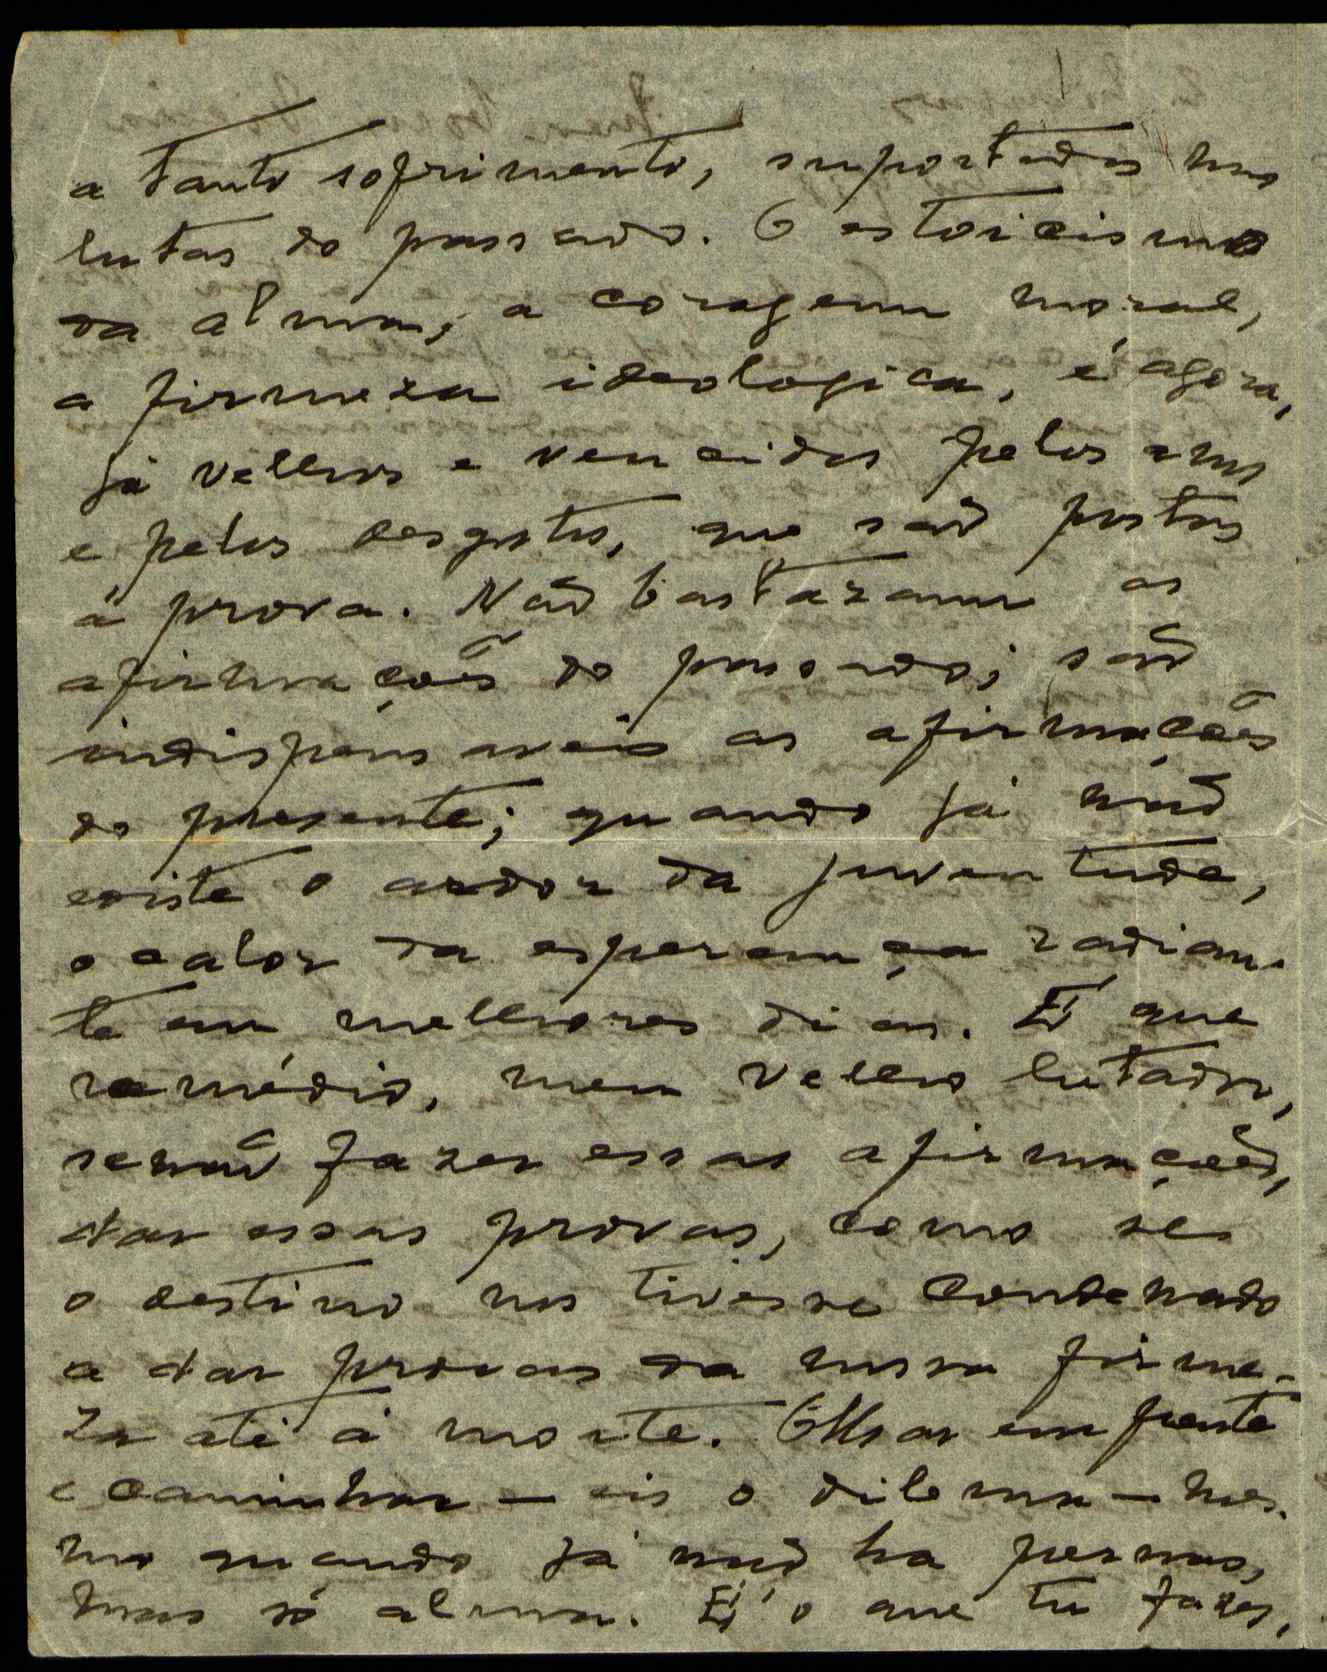 a tanto sofrimento, suportados nas
lutas do passado. O estoicismo
da alma, a coragem moral,
a firmeza ideologica, é agora,
já velhos e vencidos pelos anos
e pelos desgostos, que são postos
á prova. Não bastaram as
afirmações do passado; são
indispensaveis as afirmações
do presente; quando já não
existe o ardor da juventude,
o calor da esperança radian-
te em melhores dias. E que
remédio, meu velho lutador,
senão fazer essas afirmações,
dar essas provas, como se
o destino nos tivesse condenado
a dar provas da nossa firme-
za até á morte. Olhar em frente
e caminhar — eis o dilema — mes-
mo quando já não ha pernas,
mas só alma. É o que tu fazes,